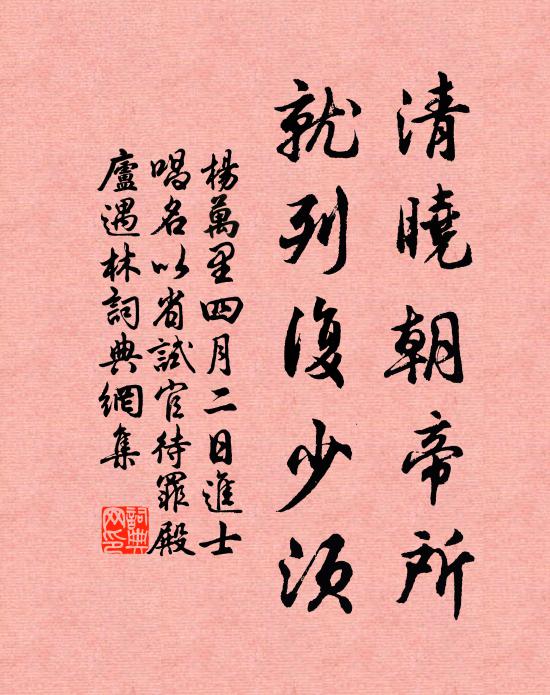 清曉朝帝所
就列復少須
楊萬里四月二日進士
唱名以省試官待罪殿
廬遇林詞典網集
詞典
网印